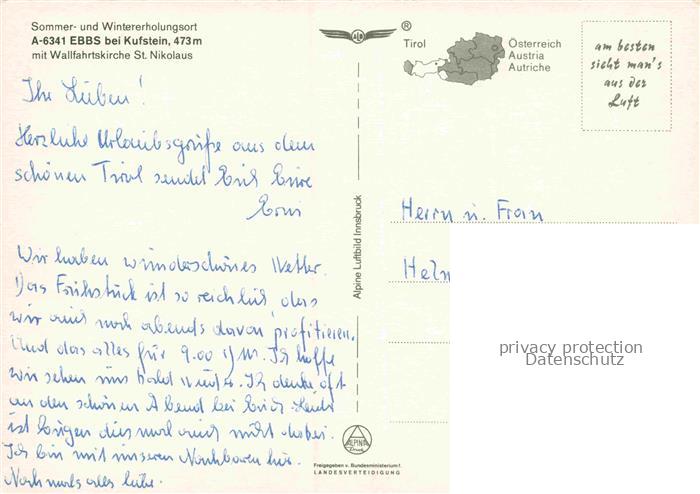 Sommer- und Wintererholungsort
A-6341 EBBS bei Kufstein, 473 m
mit Wallfahrtskirche St. Nikolaus
Ihr Lieben!
Herzliche Urlaubsgrüße aus dem
schönen Tirol sendet Euch Eure
Erni
Wir haben wunderschönes Wetter.
Das Frühstück ist so reichlich, dass
wir auch noch abends davon profitieren.
Und das alles für 9.00 DM. Ich hoffe
wir sehen uns bald wieder. Ich denke oft
an den schönen Abend bei Euch.
ist diesmal auch nicht dabei.
Ich bin mit unseren Nachbarn hier.
Nochmals alles liebe.
ALB
®
Alpine Luftbild Innsbruck
ALPINA
Druck
Freigegeben v. Bundesministerium f.
LANDESVERTEIDIGUNG
Tirol
Österreich
Austria
Autriche
am besten
sieht man's
aus der
Luft
Herrn u. Frau
privacy protection
Datenschutz